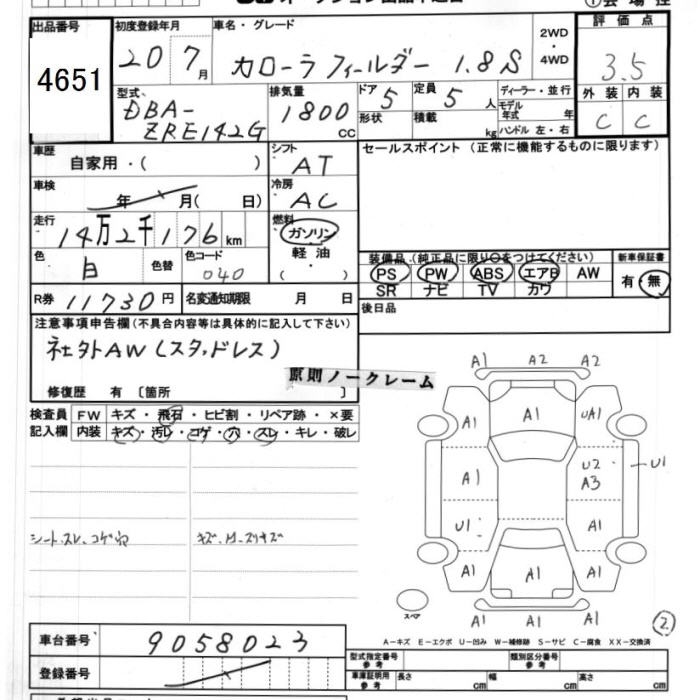 出品番号
4651
初度登録年月
20 7月
車名・グレード
カローラ フィールダー 1.8S
2WD
・
4WD
評価点
3.5
外装 内装
C C
型式
DBA-
ZRE142G
排気量
1800
cc
ドア 5
定員 5人
形状
積載 kg
ディーラー・並行
モデル年式 年
ハンドル 左・右
車歴
自家用・( )
シフト
AT
セールスポイント(正常に機能するものに限ります)
車検
年 月( 日)
冷房
AC
走行
14万2千176km
燃料
ガソリン
軽油
・
( )
色
白
色替
色コード
040
装備品(純正品に限り○をつけてください)
PS PW ABS エアB AW
SR ナビ TV カワ
新車保証書
有・無
R券 11730円
名変通知期限 月 日
後日品
注意事項申告欄(不具合内容等は具体的に記入して下さい)
社外AW(スタッドレス)
修復歴 有〔箇所 〕
原則ノークレーム
検査員
記入欄
FW キズ・飛石・ヒビ割・リペア跡・×要
内装 キズ・汚レ・コゲ・穴・スレ・キレ・破レ
シートスレ、コゲ穴
A1 A2 A2
A1 A1 UA1
A1 U2 A3 U1
U1 A1
A1 A1 A1
A1 A1 A1
スペア
2
A-キズ E-エクボ U-凹み W-補修跡 S-サビ C-腐食 XX-交換済
車台番号
9058023
登録番号
型式指定番号
参考
類別区分番号
参考
車庫証明用
参考
長さ cm
幅 cm
高さ cm